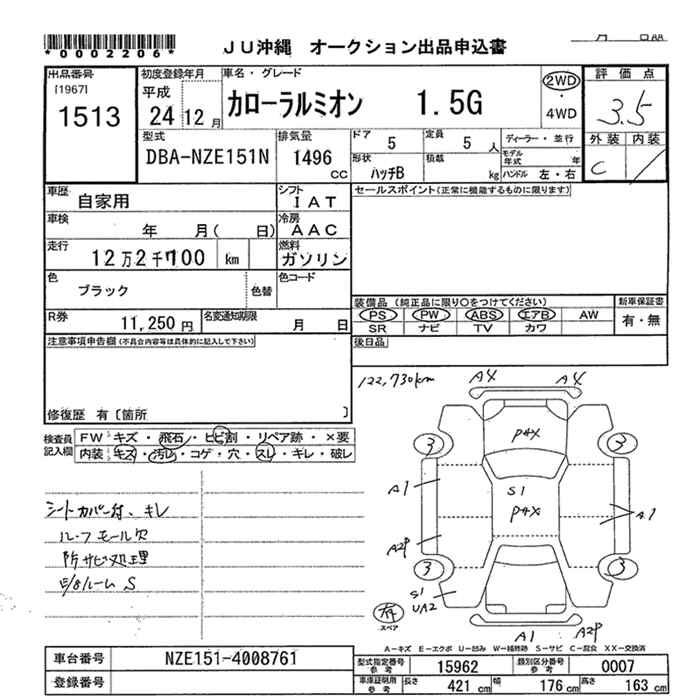 *0002206*
JU沖縄 オークション出品申込書
月 日
出品番号
[1967]
1513
初度登録年月
平成
24 12 月
車名・グレード
カローラルミオン 1.5G
2WD
・
4WD
評価点
3.5
外装 内装
C
型式
DBA-NZE151N
排気量
1496
CC
ドア 5
定員 5 人
形状 ハッチB
積載 kg
ディーラー・並行
モデル年式 年
ハンドル 左・右
車歴 自家用
シフト IAT
車検 年 月( 日)
冷房 AAC
走行 12万2千700 km
燃料 ガソリン
色 ブラック
色替
色コード
R券 11,250 円
名変通知期限 月 日
セールスポイント(正常に機能するものに限ります)
装備品 (純正品に限り〇をつけてください)
PS PW ABS エアB AW
SR ナビ TV カワ
新車保証書
有・無
後日品
注意事項申告欄(不具合内容等は具体的に記入して下さい)
修復歴 有〔箇所 〕
検査員記入欄
FW キズ・飛石・ヒビ割・リペア跡・×要
内装 キズ・汚レ・コゲ・穴・スレ・キレ・破レ
シートカバー付、キレ
ルーフモール欠
防サビ処理
ルームS
122,730km
A4 A4
P4X
3 3
A1
S1
P4X
A1
A2P
3 3
S1
UA2
有
スペア
A1 A2P
A=キズ E=エクボ U=凹み W=補修跡 S=サビ C=腐食 XX=交換済
車台番号 NZE151-4008761
登録番号
型式指定番号 参考 15962
類別区分番号 参考 0007
車庫証明用 参考 長さ 421 cm 幅 176 cm 高さ 163 cm